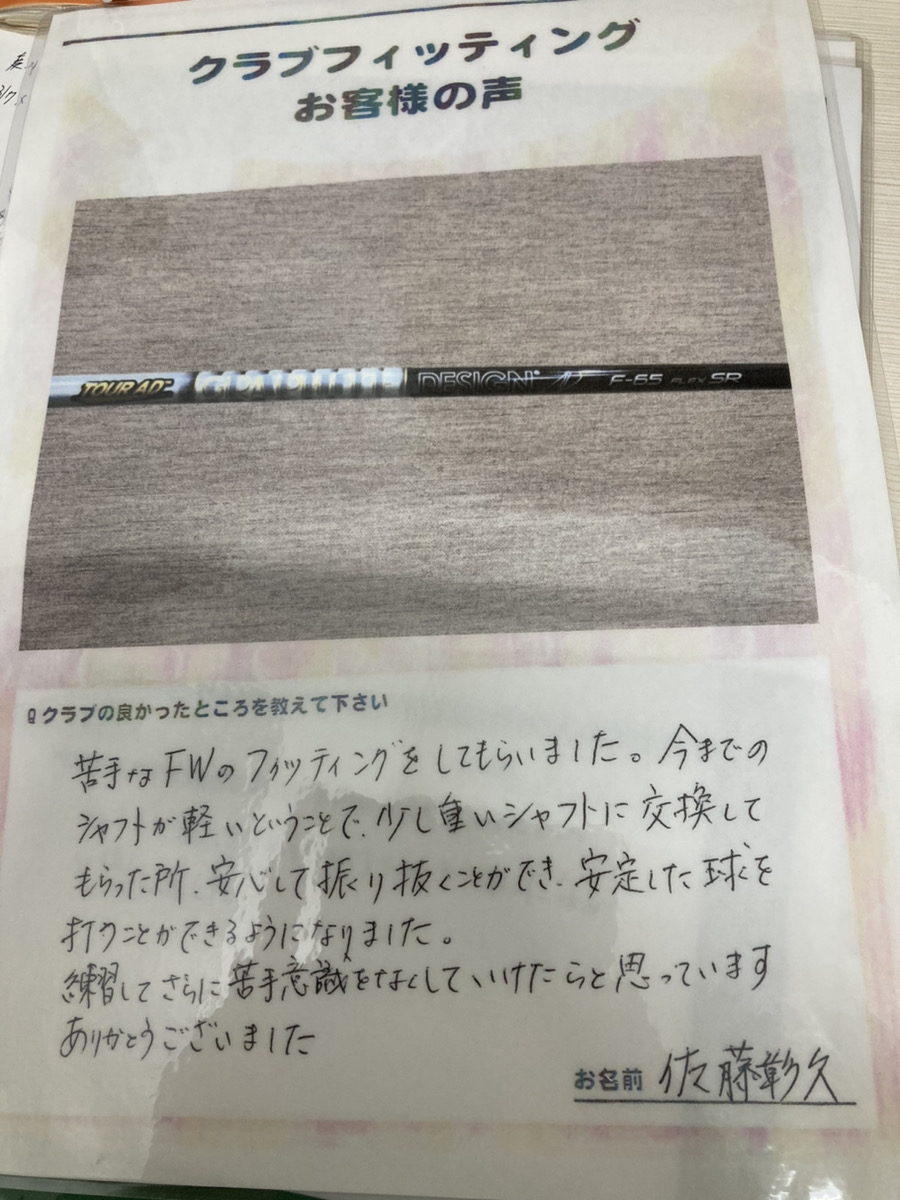 クラブフィッティング
お客様の声
TOUR AD
DESIGN
F-65 FLEX SR
Q クラブの良かったところを教えて下さい
苦手なFWのフィッティングをしてもらいました。今までの
シャフトが軽いということで、少し重いシャフトに交換して
もらった所、安心して振り抜くことができ、安定した球を
打つことができるようになりました。
練習してさらに苦手意識をなくしていけたらと思っています
ありがとうございました
お名前 佐藤彰久